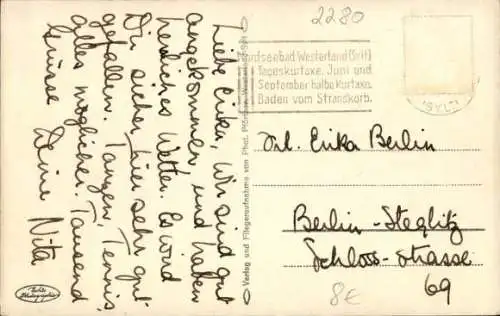 Liebe Erika, Wir sind gut
angekommen und haben
herrliches Wetter. Es wird
Dir sicher hier sehr gut
gefallen. Tanzen, Tennis,
alles mögliche. Tausend
Grüsse Deine Nita
Verlag und Fliegeraufnahme vom Phot.
2280
Nordseebad Westerland (Sylt)
Tageskurtaxe. Juni und
September halbe Kurtaxe.
Baden vom Strandkorb.
(SYLT)
Frl. Erika Berlin
Berlin-Steglitz
Schloss-strasse
69
8€
Echte
Photographie